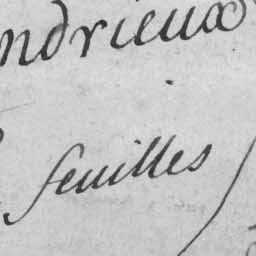 ndrieux
feuilles